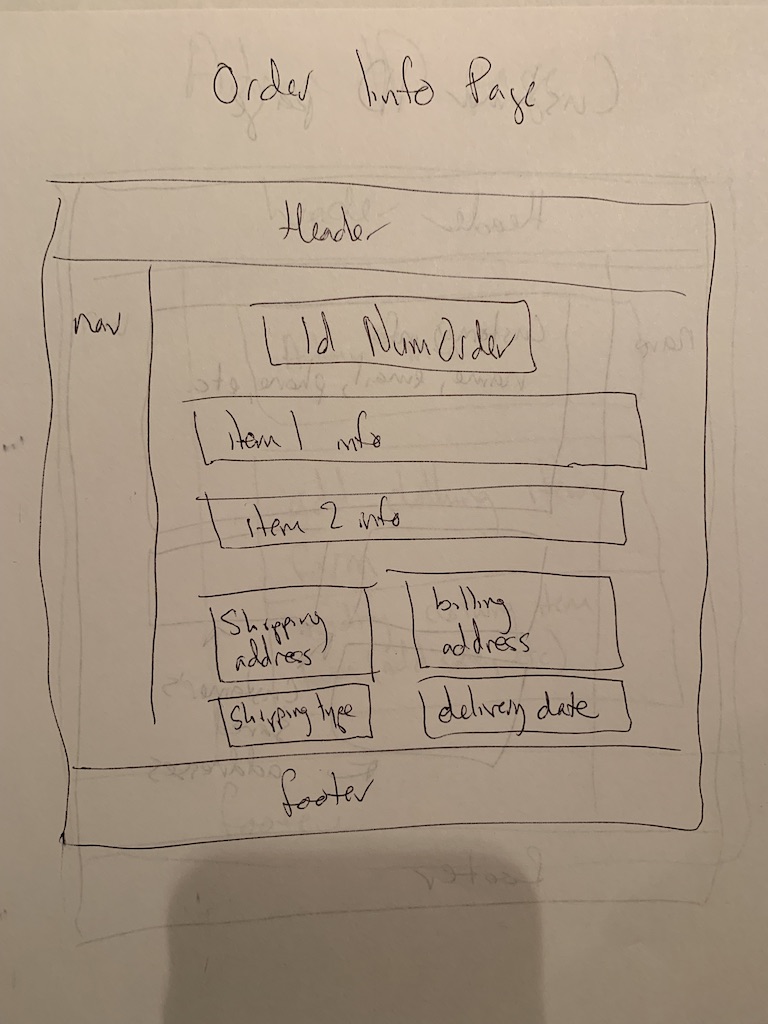 Order Info Page
Header
nav
Id NumOrder
item 1 info
item 2 info
Shipping
address
billing
address
Shipping type
delivery date
footer